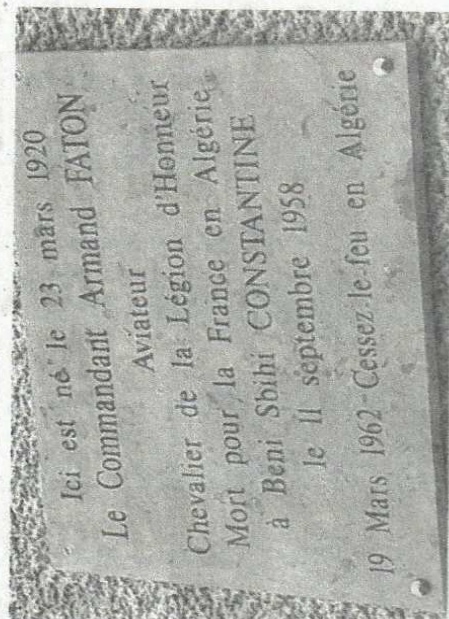 Ici est né le 23 mars 1920
Le Commandant Armand FATON
Aviateur
Chevalier de la Légion d'Honneur
Mort pour la France en Algérie
à Beni Sbihi CONSTANTINE
le 11 septembre 1958
19 Mars 1962-Cessez-le-feu en Algérie